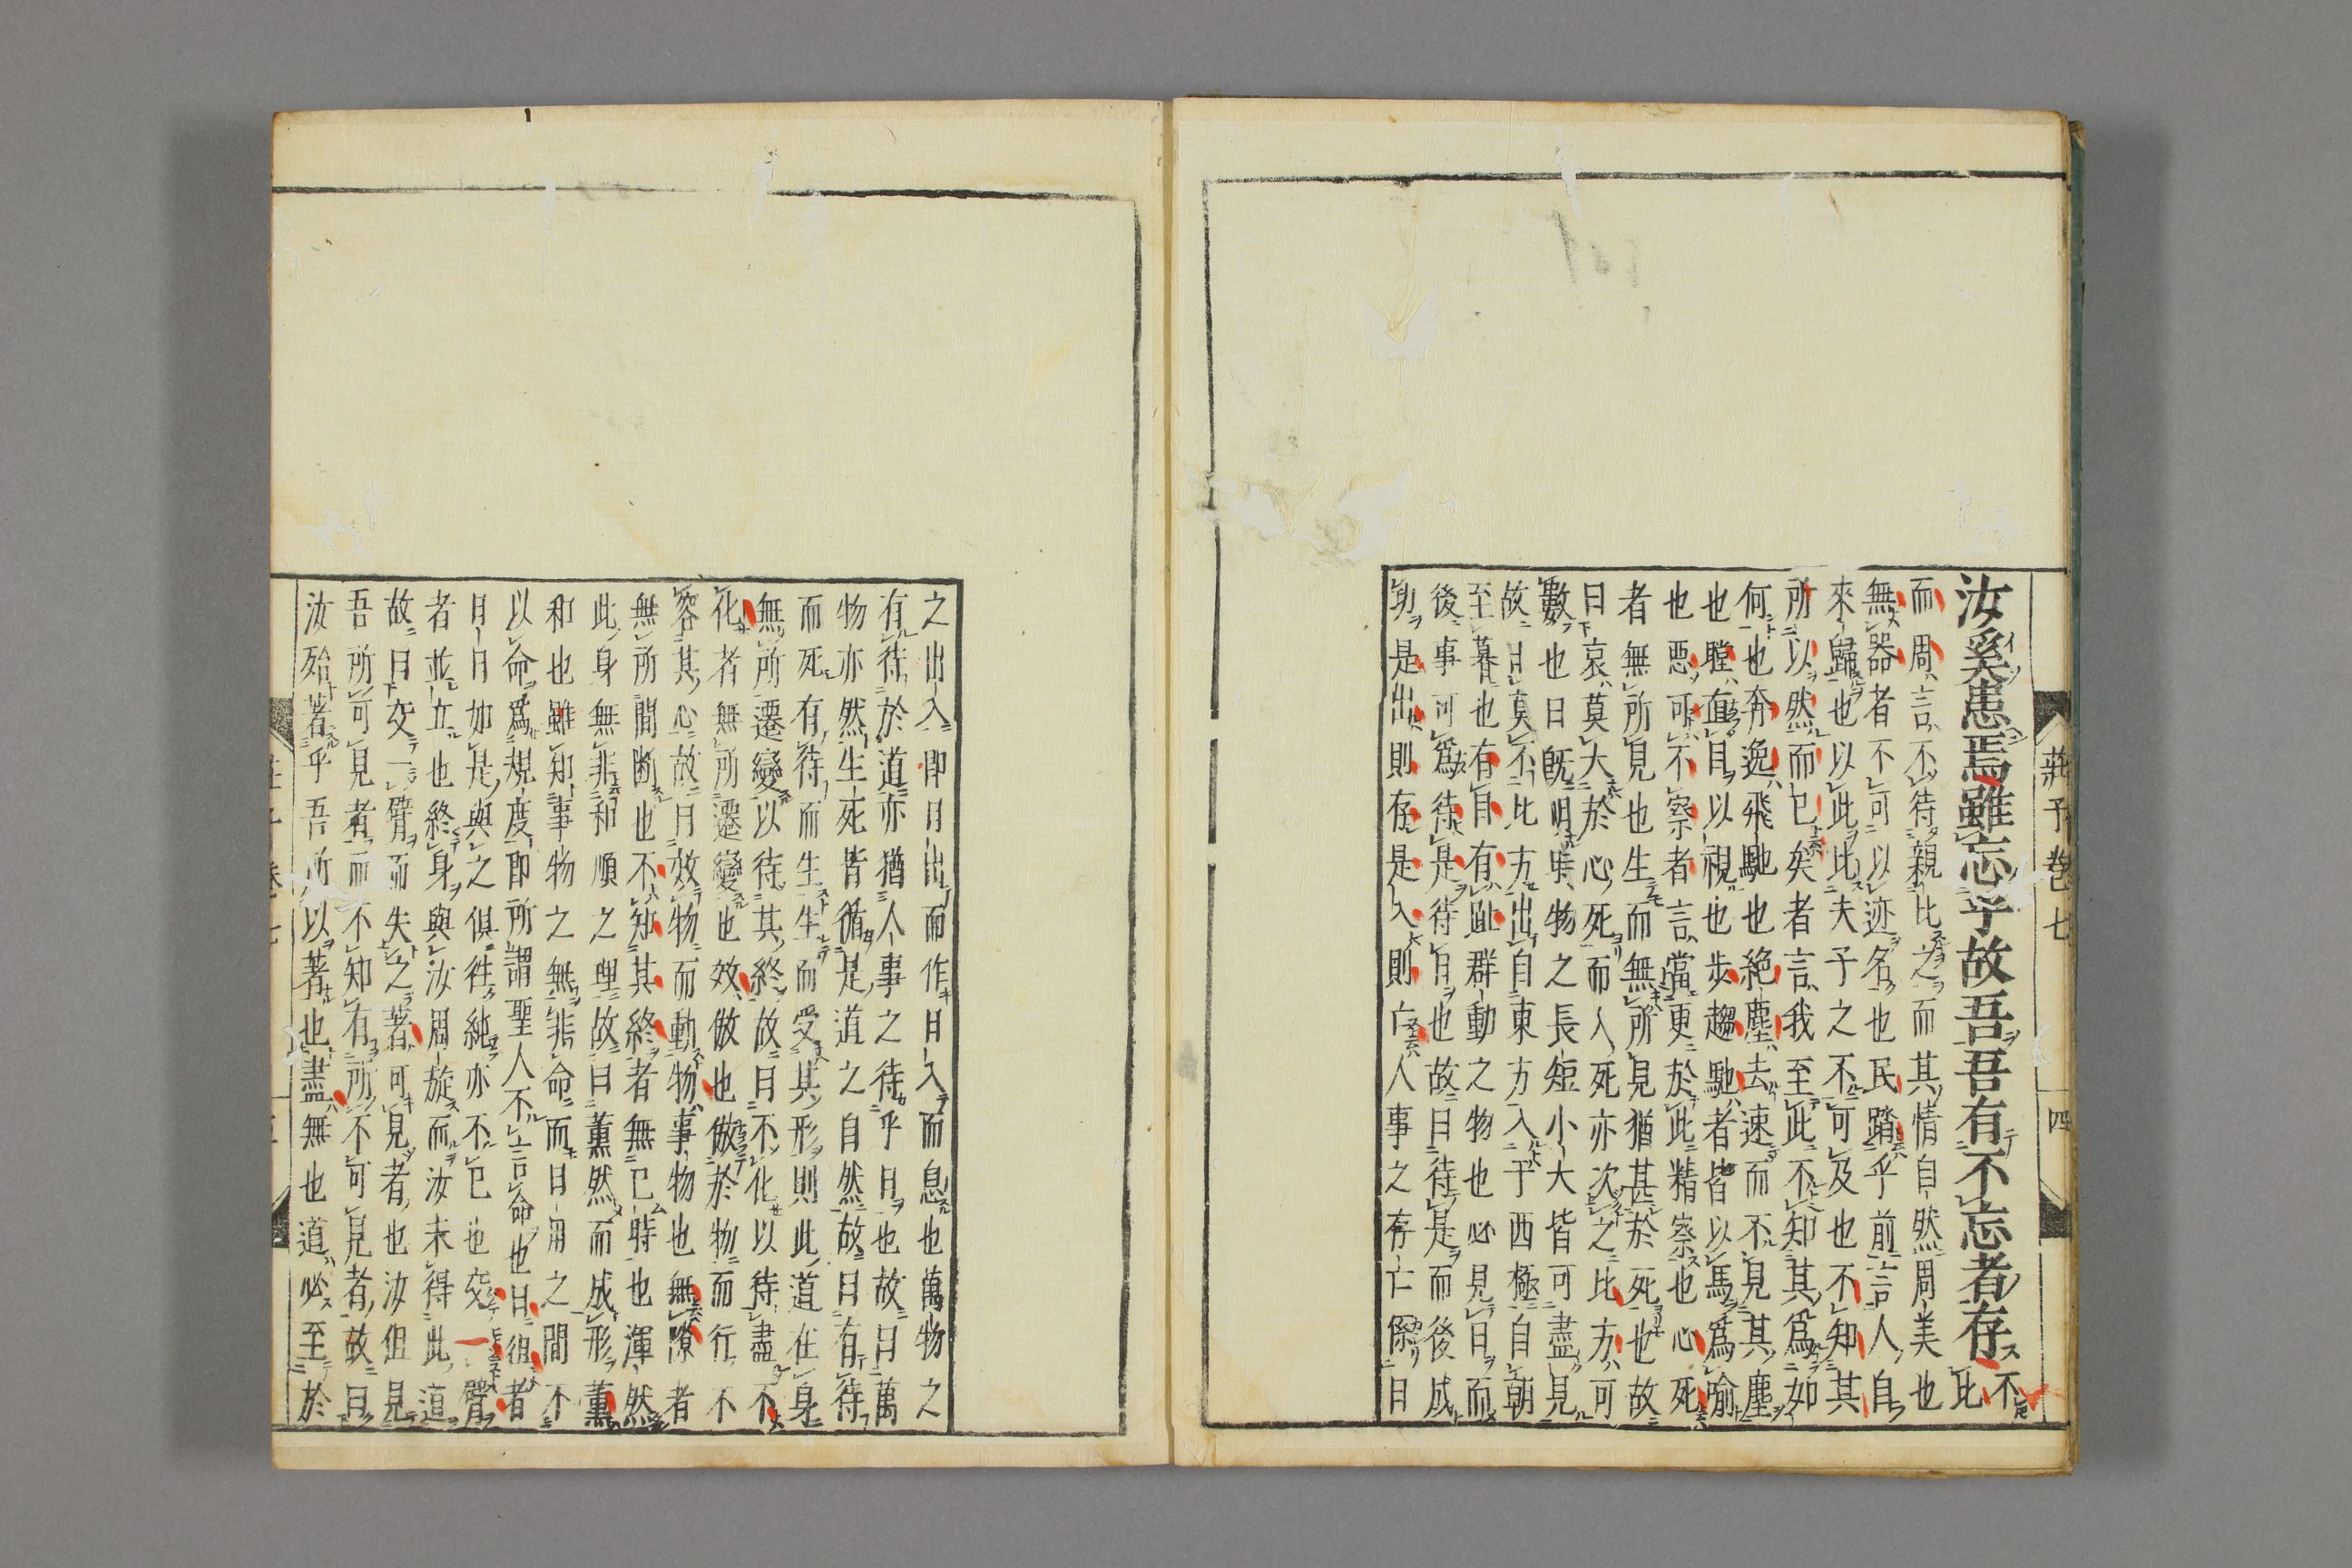 汝奚患焉雖忘乎故吾吾有不忘者存不比
而周言不待親比之而其情自然周美也
無器者不可以迹名也民蹈乎前言人自
來歸也以此比夫子之不可及也不知其
所以然而已矣者言我至此不知其爲如
何也奔逸飛馳也絶塵去速而不見其塵
也瞠直目以視也步趨馳者皆以馬爲喻
也惡可不察者言當更於此精察也心死
者無所見也生而無所見猶甚於死也故
曰哀莫大於心死而人死亦次之比方可
數也日既明時物之長短小大皆可盡見
故曰莫不比方出自東方入于西極自朝
至暮也有目有趾群動之物也必見日而
後事可爲待是待日也故曰待是而後成
功是出則存是入則亡人事之存亡係日
莊子卷七
四
之出入即日出而作日入而息也萬物之
有待於道亦猶人事之待乎日也故曰萬
物亦然生死皆循是道之自然故曰有待
而死有待而生生而受其形則此道在身
無所遷變以待其終故曰不化以待盡不
化者無所遷變也效倣也倣於物而行不
容其心故曰效物而動物事物也無隙者
無所間断也不知其終者無已時也渾然
此身無非和順之理故曰薰然而成形薰
和也雖知事物之無非命而日用之間不
以命爲規度即所謂聖人不言命也曰徂者
日日如是與之俱徃純亦不已也交一臂
者並立也終身與汝周旋而汝未得此道
故曰交一臂而失之著可見者也汝但見
吾所可見者而不知有所不可見者故曰
汝殆著乎吾所以著也盡無也道必至於